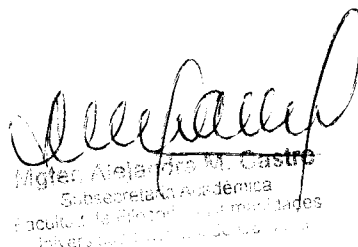 Mgter. Alejandra M. Castro
Subsecretaria Académica
Facultad de Filosofía y Humanidades
Universidad